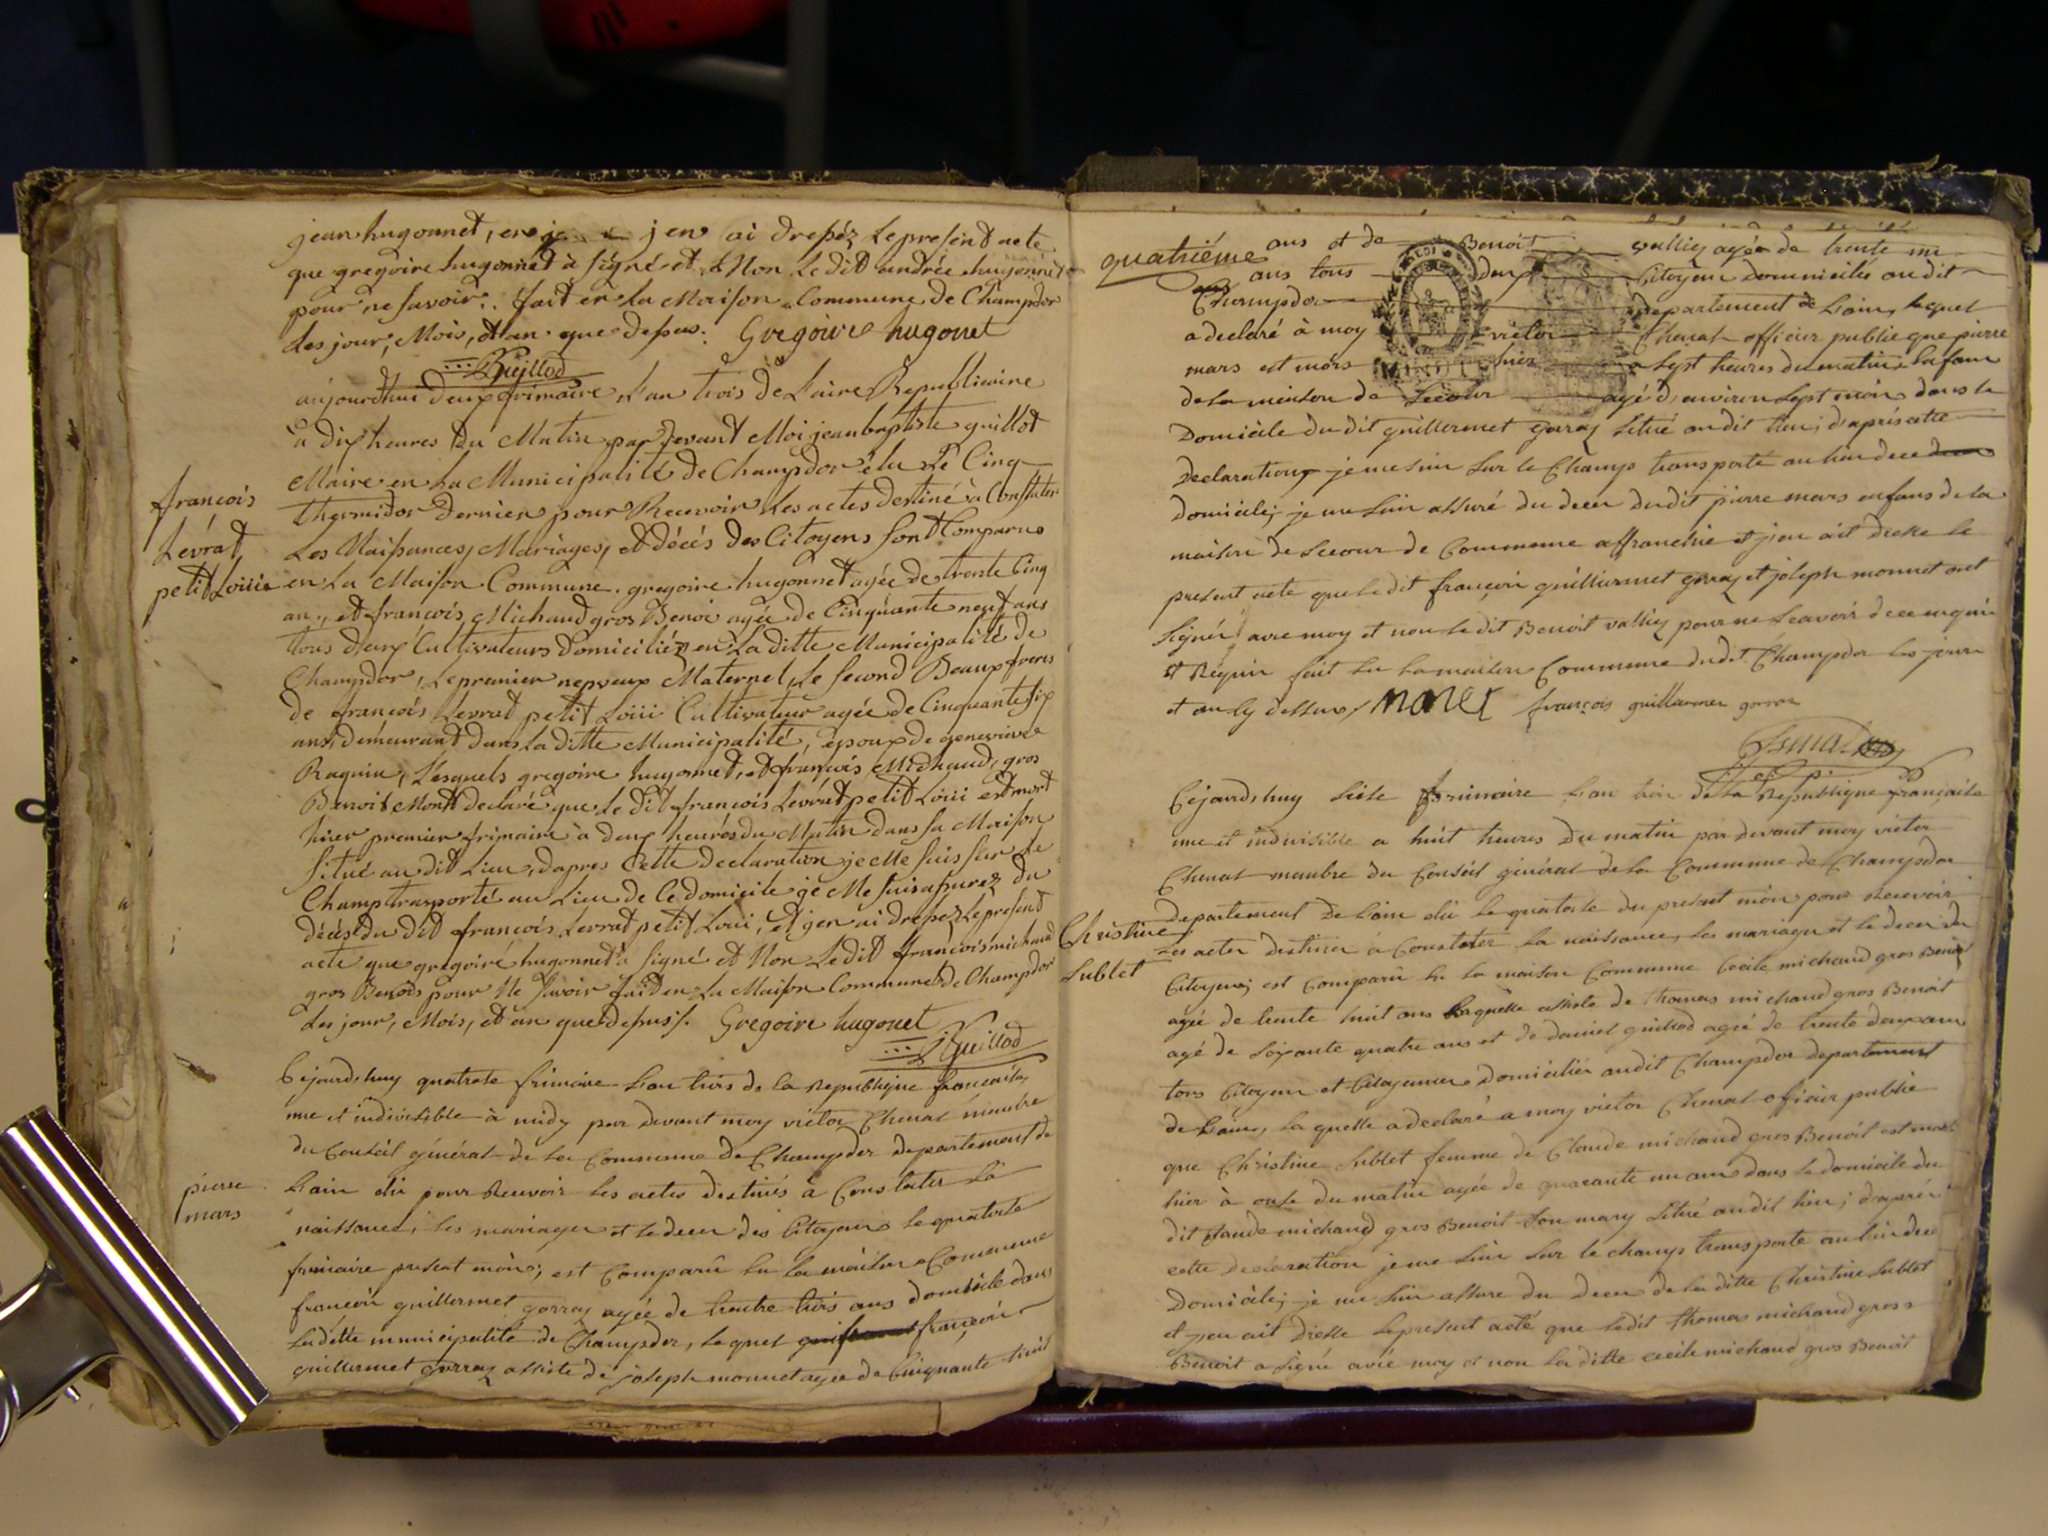 jean hugonnet, en jen ai dressez le present acte
que gregoire hugonnet à signé et Non Le dit andrée hugonnet
pour ne savoir. fait en La Maison Commune de Champdor
Les jour, Mois, et an que depus. Gregoire hugonet
Guillod
aujourdhui deux frimaire Lan trois de Laire Republicaine
à dix heures du Matin par devant Moi jean baptiste guillot
Maire en La Municipalité de Champdor élu Le Cinq
thermidor dernier pour Recevoir Les actes destiné à Constater
Les Naissances, Mariages, et décés des Citoyens sont Comparus
françois
Levrat
petit Loüie
en La Maison Commune. gregoire hugonnet agée de trente Cinq
an, et françois Michaud gros Benoi agée de Cinquante neuf ans
tous deux Cultivateurs domiciliéz en La ditte Municipalité de
Champdor, Le premier nepveux Maternel, Le second Beaux freres
de françois Levrat petit Loiii Cultivateur agée de Cinquante six
ans, demeurant dans la ditte Municipalité, époux de genevieve
Raquin, Lesquels gregoire hugonnet, et françois Michaud, gros
Benoit Mont declaré que le dit françois Levrat petit Loiii est mort
hier premier frimaire à deux heures du Matin dans sa Maison
situé au dit Lieu, dapres Cette declaration je Me suis sur Le
Champ trasporté au Lieu de Ce domicile je Me suis assurez du
décés du dit françois Levrat petit Loiii, et jen ai dressez Le present
acte que gregoire hugonnet à signé et Non Le dit françois michaud
gros Benois pour Ne savoir fait en La Maison Commune de Champdor
Les jour, Mois, et an que depuss. Gregoire hugonet
Guillod
Cejourdshuy quatorse frimaire Lan trois de la Republique francaise
une et indivisible à midy par devant moy victor Chenat membre
du Conseil général de la Commune de Champdor departement de
pierre
mars
Lain élü pour Recevoir les actes destinés à Constater La
naissance, les mariages et le deces des Citoyens le quatorse
frimaire present mois; est Comparu en la maison Commune
françois guillermet gorraz agée de trentre trois ans domicilé dans
laditte municipalite de Champdor, lequel françois
guillermet gorraz assisté de joseph monnet agée de Cinquante huit
quatriéme
ans et de Benoit valliez agée de trente un
ans tous deux Citoyens domiciliés audit
Champdor departement de Lain, lequel
a declaré à moy victor Chenat officier public que pierre
mars est mors hier a sept heures du matin enfant
de la meison de secour agé d'environ sept mois dans le
Domicile du dit guillermet gorraz situé audit lieu; d'aprés cette
declaration je me suis sur le Champ transporté au lieu de ce
domicile; je me suis assuré du deces dudit pierre mars enfans de la
maison de secour de Commune affranchie et j'en ait dressé le
present acte que ledit françois guillermet gorraz et joseph monnet ont
signés avec moy et non le dit Benoit valliez pour ne scavoir de ce enquis
et Requis fait en la maison Commune dudit Champdor les jours
et an cy dessus / moner françois guillarmer gorraz
Cejourdshuy seise frimaire Lan trois de la République françaisse
une et indivisible a huit heures du matin par devant moy victor
Chenat membre du Conseil général de la Commune de Champdor
departement de Lain élü le quatorse du present mois pour Recevoir
Christine
Sublet
Les actes destinés à Constater la naissance, les mariages et le deces des
Citoyens; est Comparu en la maison Commune Cecile michaud gros Benoit
agée de trente huit ans laquelle assistée de thomas michaud gros Benoit
agé de soixante quatre ans et de daniel guillod agée de trente deux ans
tous Citoyens et Citoyennes domiciliés audit Champdor departement
de Lain, la quelle a declaré a moy victor Chenat officier public
que Christine sublet femme de Claude michaud gros Benoit est morte
hier à onse du matin agée de quarante un ans dans le domicile du
dit Claude michaud gros Benoit son mary situé audit lieu; d'aprés
cette declaration je me suis sur le champs transporte au lieu de ce
domicile; je me suis assure du deces de la ditte Christine sublet
et jen ait dresse le present acté que ledit thomas michaud gros
Benoit a signé avec moy et non la ditte cecile michaud gros Benoit